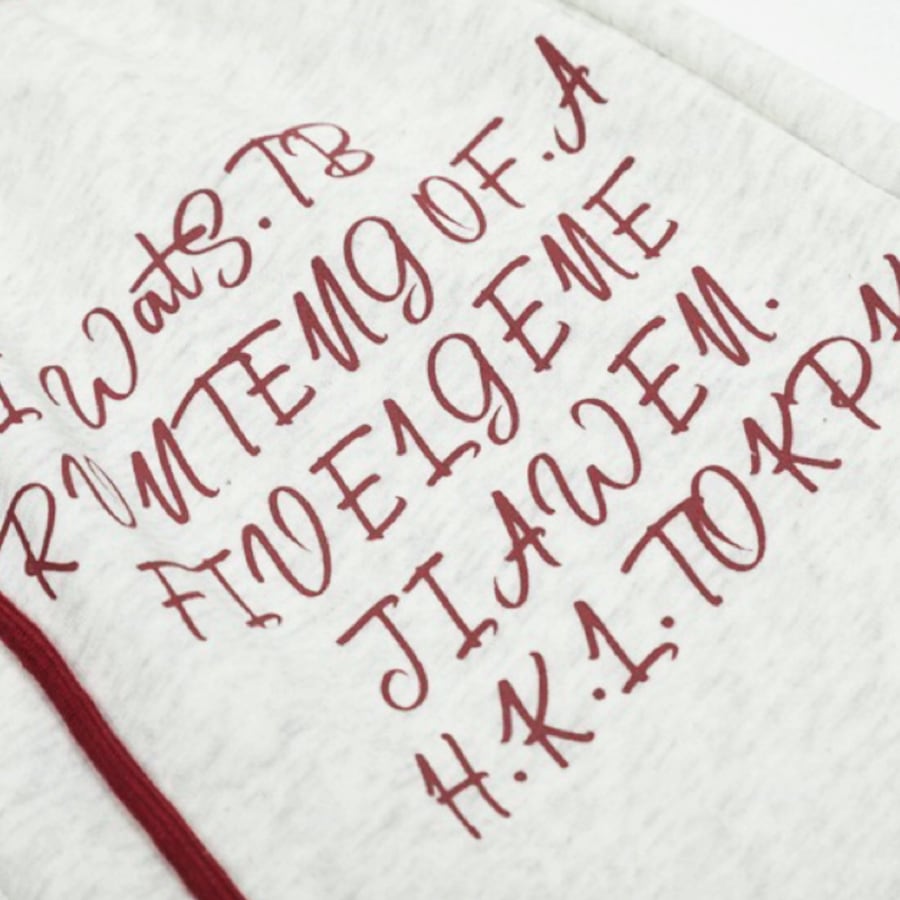 I WatS.TB
RUNTENG OF.A
FIVE1GENE
JIAWEN.
H.K.1.TOKPN